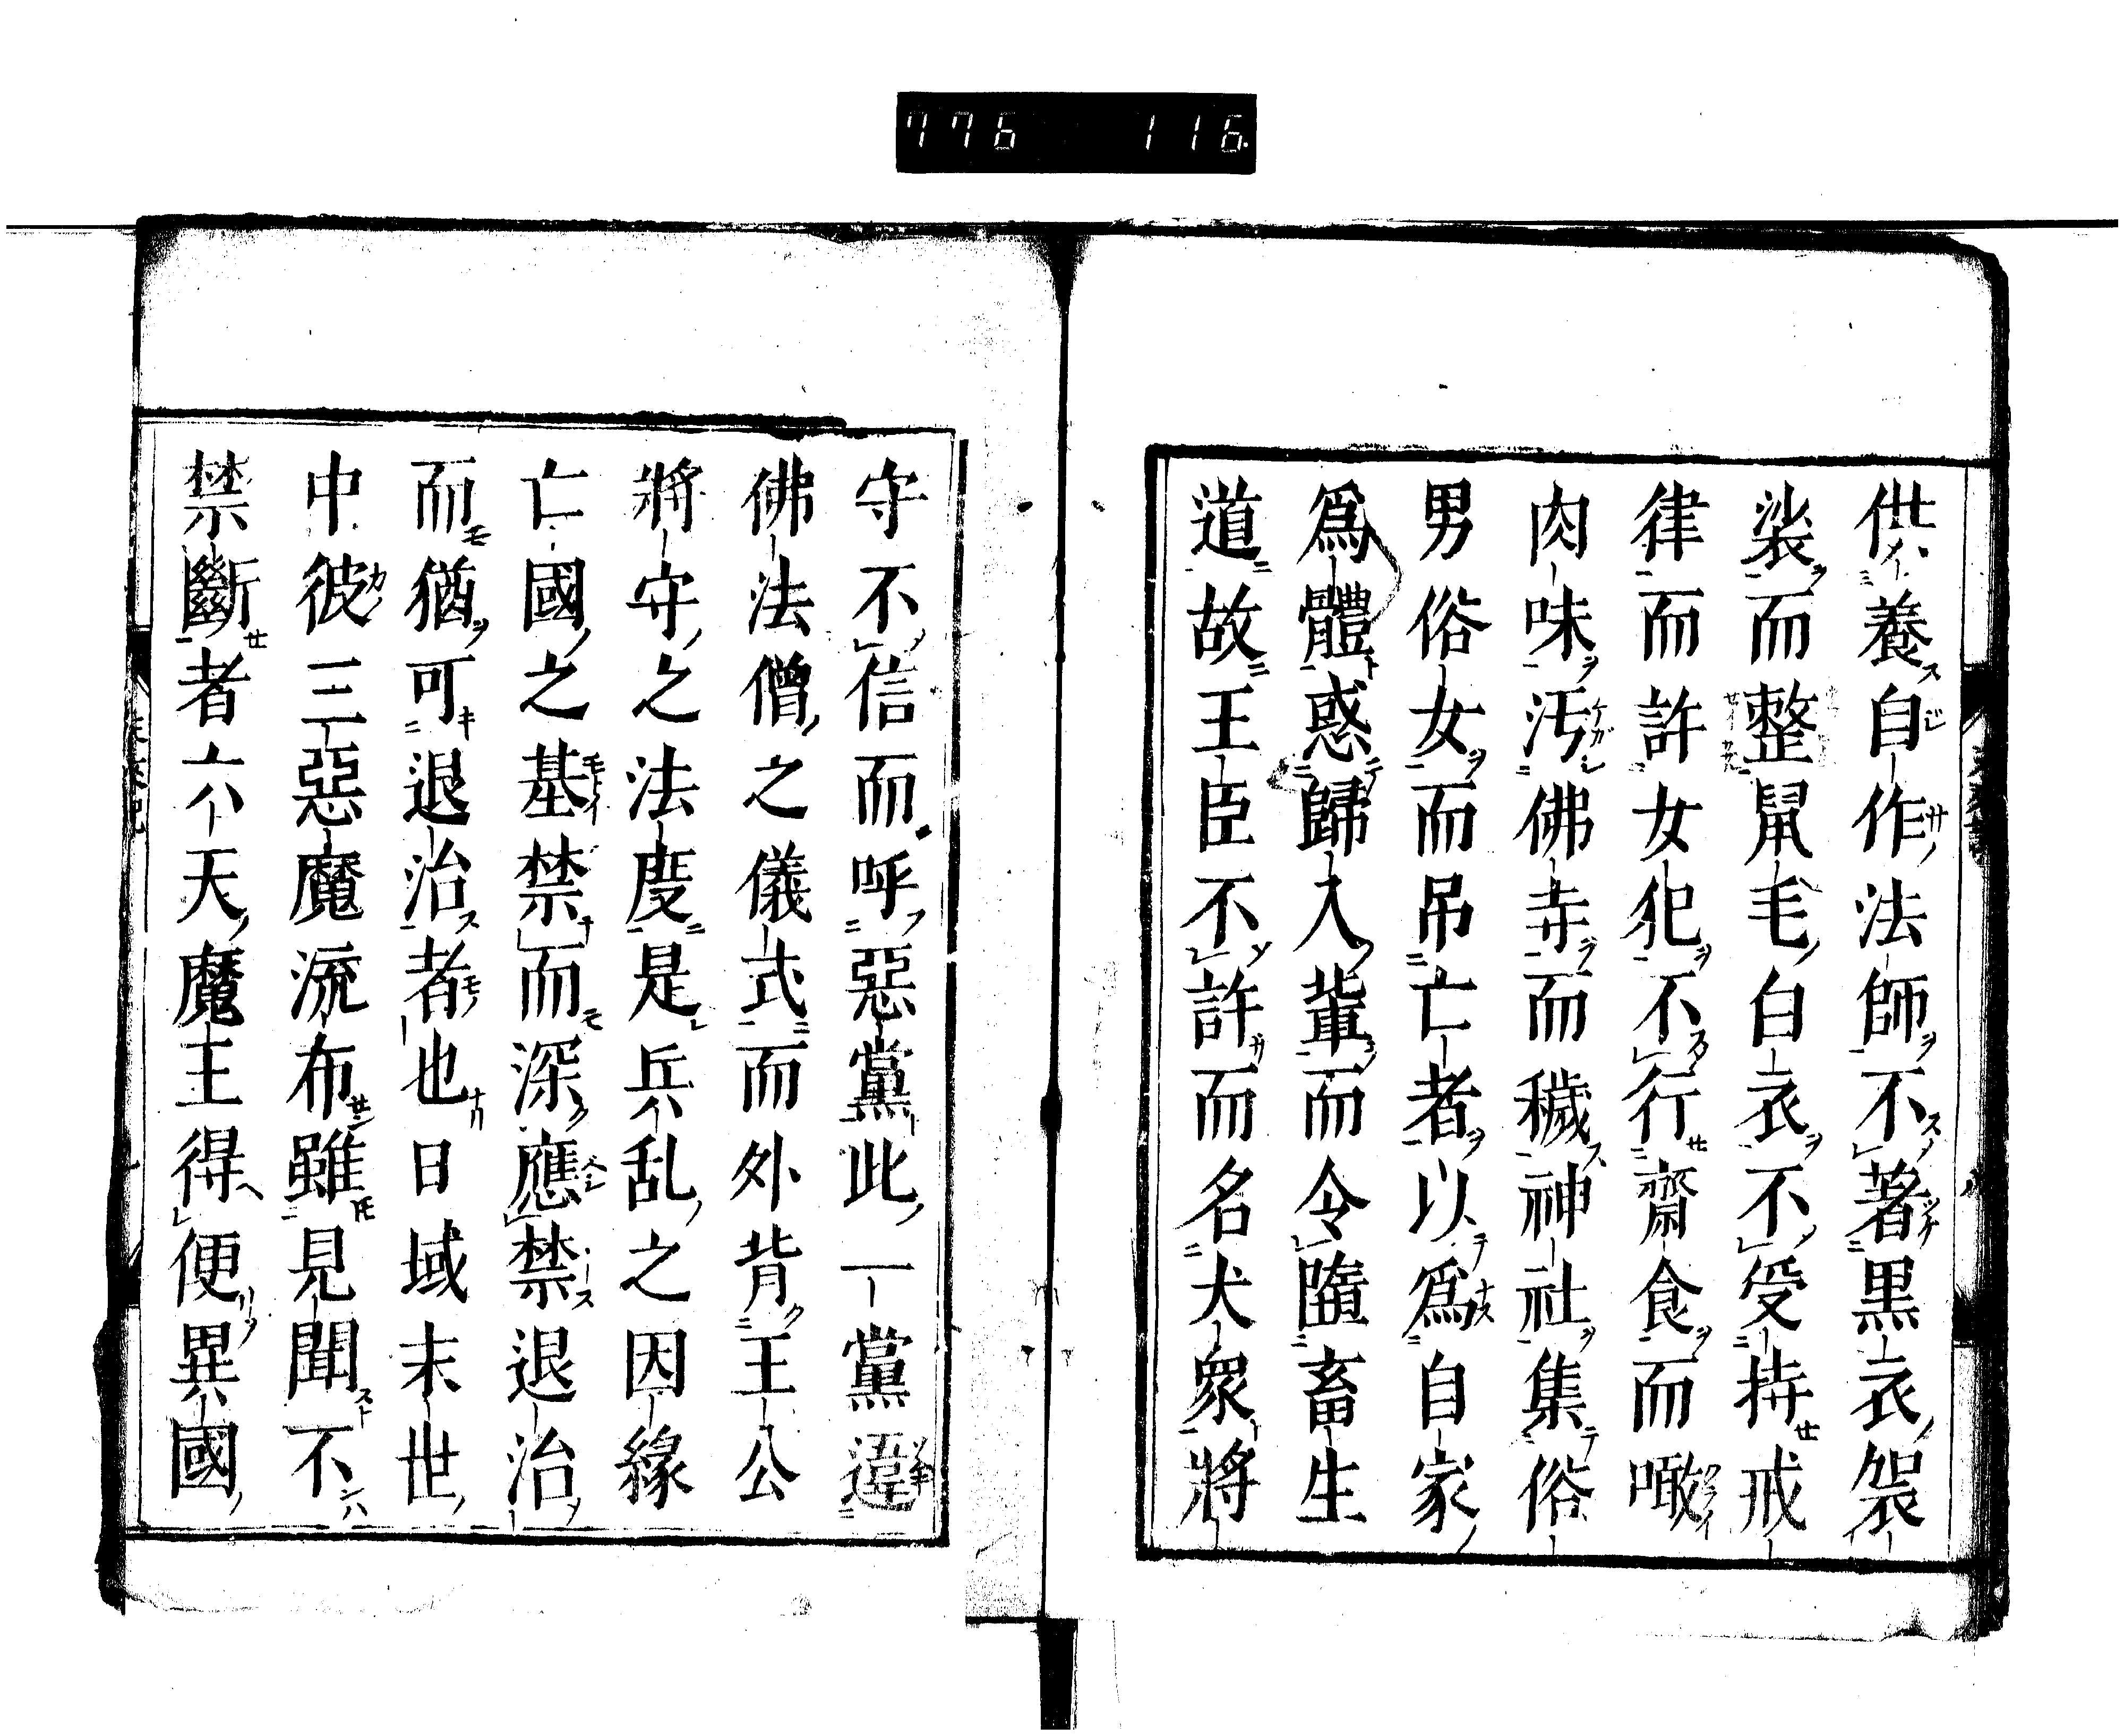 776 116
供養自作法師不著黒衣袈
裟而整鼠毛白衣不受持戒
律而許女犯不行齋食而噉
肉味汚佛寺而穢神社集俗
男俗女而吊亡者以爲自家
爲體惑歸入輩而令墮畜生
道故王臣不許而名犬衆將
守不信而呼惡黨此一黨違
佛法僧之儀式而外背王公
將守之法度是兵乱之因緣
亡國之基禁而深應禁退治
而猶可退治者也日域末世
中彼三惡魔流布雖見聞不
禁斷者六天魔王得便異國